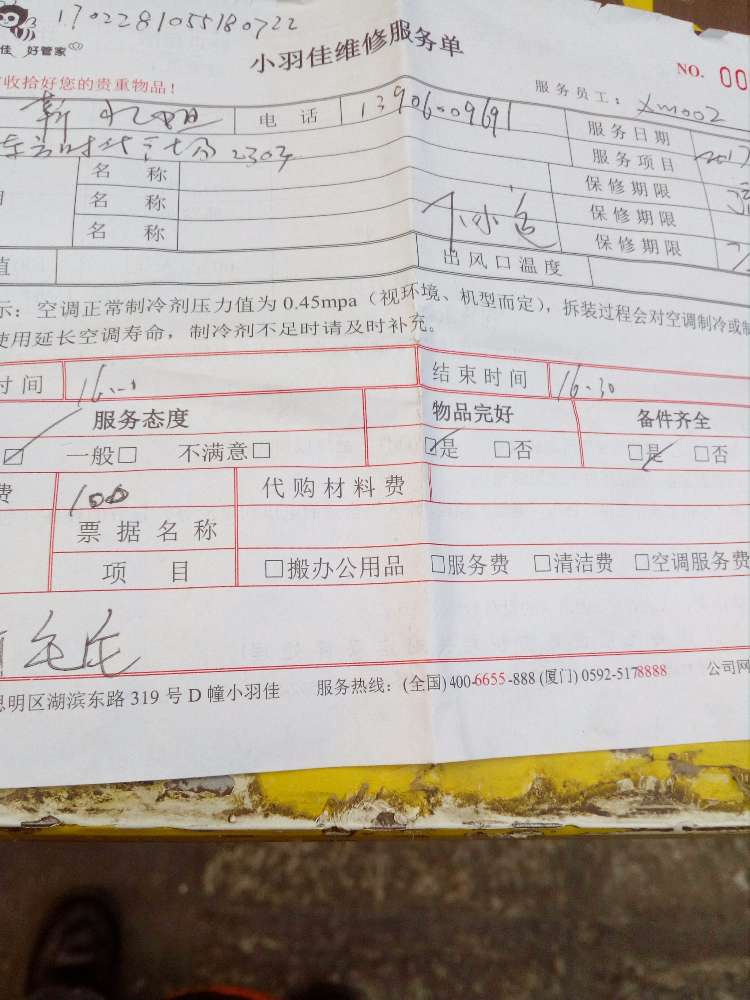 1702281055180722
佳 好管家
小羽佳维修服务单
收拾好您的贵重物品!
NO. 00
服务员工: xm002
电 话 13906009691
服务日期 2017
2303
服务项目
名 称
保修期限
名 称 保修期限
名 称 保修期限
值 出风口温度
示: 空调正常制冷剂压力值为 0.45mpa (视环境、机型而定), 拆装过程会对空调制冷或制
使用延长空调寿命, 制冷剂不足时请及时补充。
时间 结束时间 16:30
服务态度 物品完好 备件齐全
☑ 一般□ 不满意□ ☑是 □否 ☑是 □否
费 100 代购材料费
票据名称
项 目 □搬办公用品 □服务费 □清洁费 □空调服务费
思明区湖滨东路 319 号 D 幢小羽佳 服务热线: (全国) 400-6655-888 (厦门) 0592-5178888 公司网